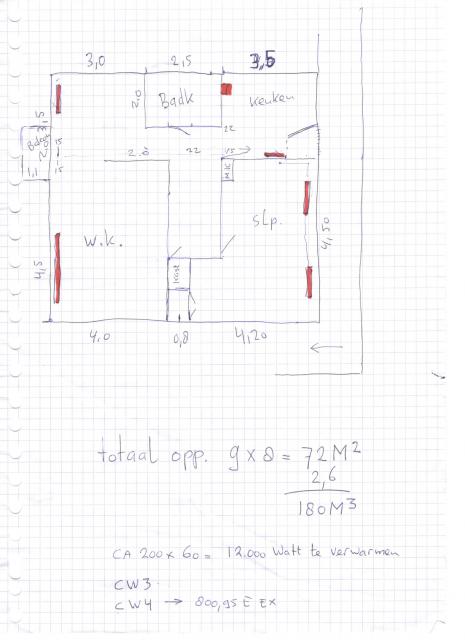 3,0 2,5 3,5
2,0 Badk keuken
3,5
22
Balk
2,0
15
15
1,1
2.0 22 15
MK
w.k. slp.
4,5 4,50
kast
4,0 0,8 4,20
totaal opp. 9 x 8 = 72 M²
2,6
180 M³
CA 200 x 60 = 12.000 Watt te verwarmen
CW3
CW4 → 800,95 E Ex